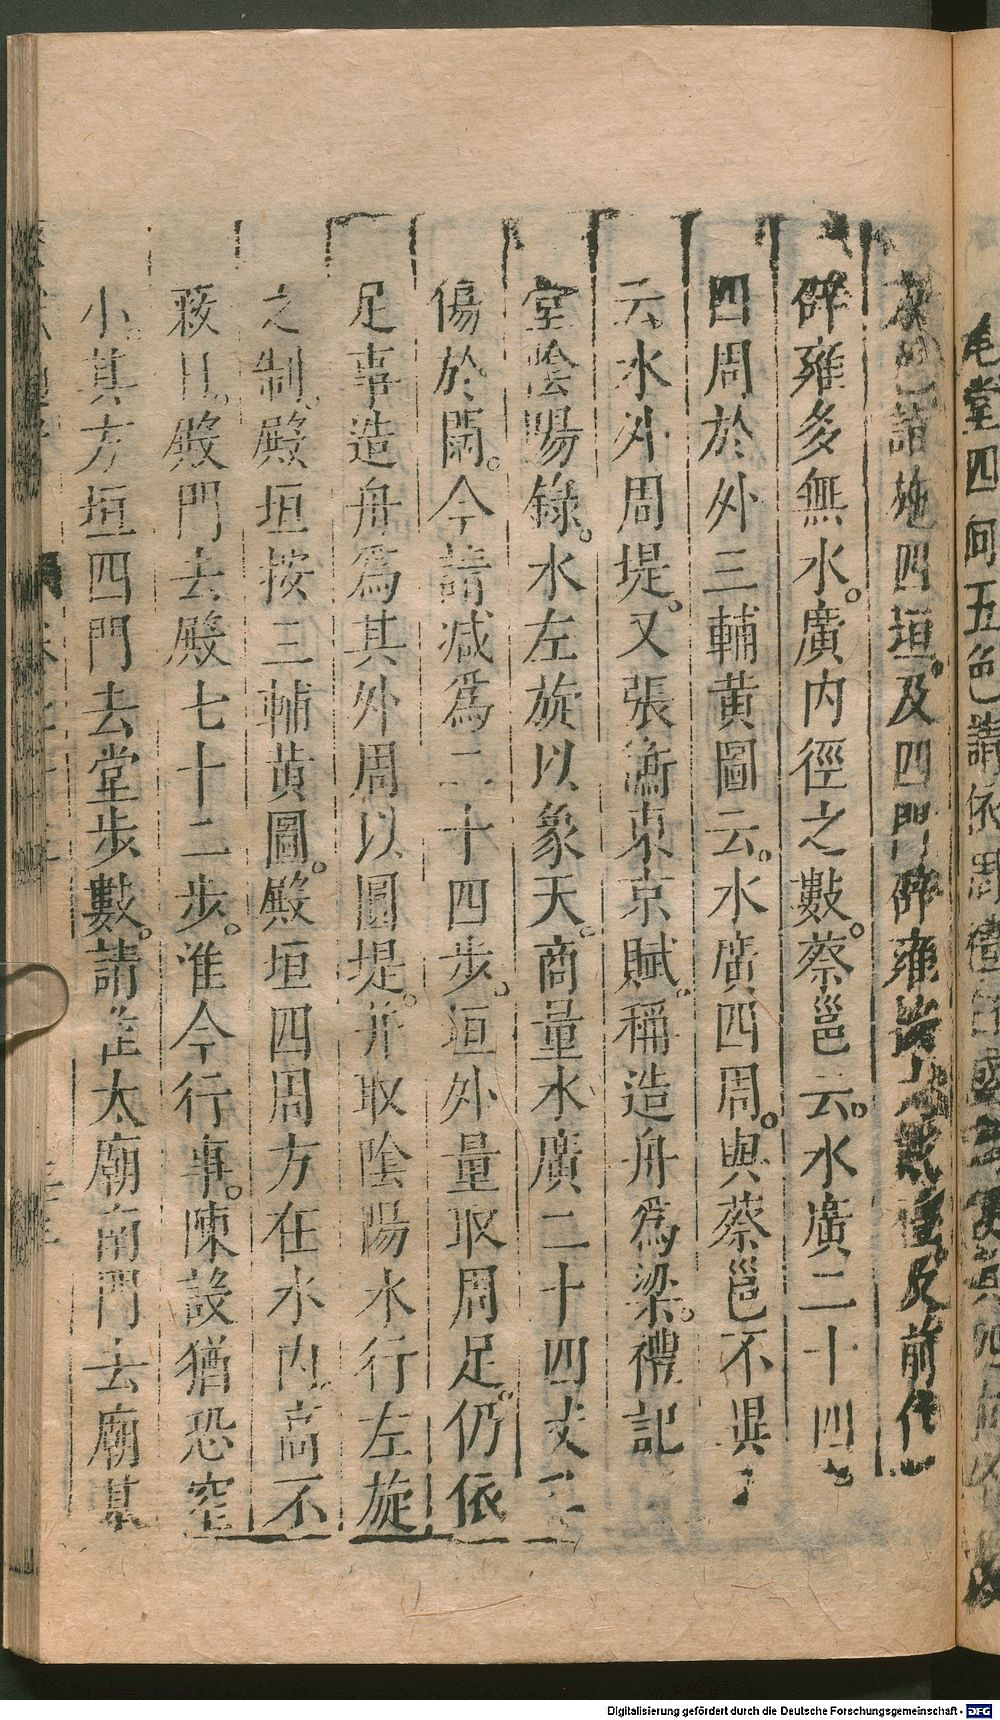 尾堂四向五色請依周禮
請施四垣及四門辟雍及前代
辟雍多無水廣内徑之數蔡邕云水廣二十四
四周於外三輔黄圖云水廣四周與蔡邕不異
云水外周堤又張衡東京賦稱造舟為梁禮記
室陰陽錄水左旋以象天商量水廣二十四丈
傷於闊今請減爲二十四步垣外量取周足仍依
足事造舟爲其外周以圓堤并取陰陽水行左旋
之制殿垣按三輔黄圖殿垣四周方在水内高不
蔽日殿門去殿七十二步准今行事陳設猶恐窄
小其方垣四門去堂步數請准太廟南門去廟基
Digitalisierung gefördert durch die Deutsche Forschungsgemeinschaft - DFG